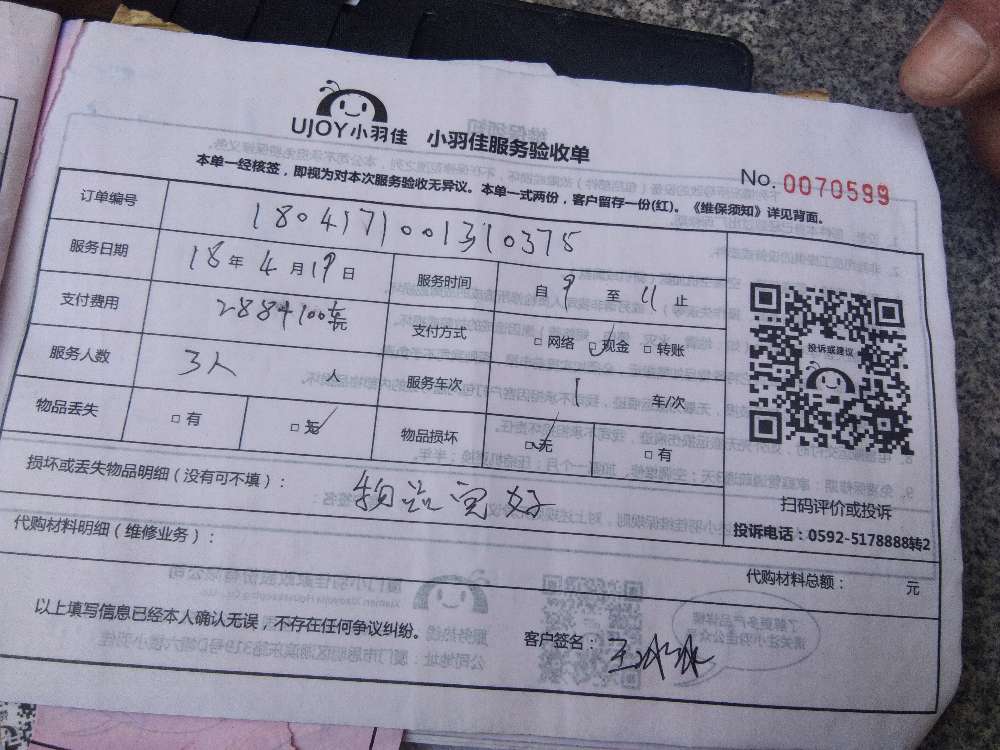 UJOY小羽佳 小羽佳服务验收单
本单一经核签，即视为对本次服务验收无异议。本单一式两份，客户留存一份(红)。《维保须知》详见背面。
No. 0070599
订单编号 1804171001310375
服务日期 18年4月19日 服务时间 自9至11止
支付费用 288+100 支付方式 □网络 □现金 □转账
服务人数 3人 人 服务车次 1 车/次
物品丢失 □有 □无 物品损坏 □无 □有
损坏或丢失物品明细（没有可不填）： 物品完好
代购材料明细（维修业务）：
投诉或建议
扫码评价或投诉
投诉电话：0592-5178888转2
代购材料总额： 元
以上填写信息已经本人确认无误，不存在任何争议纠纷。
客户签名：